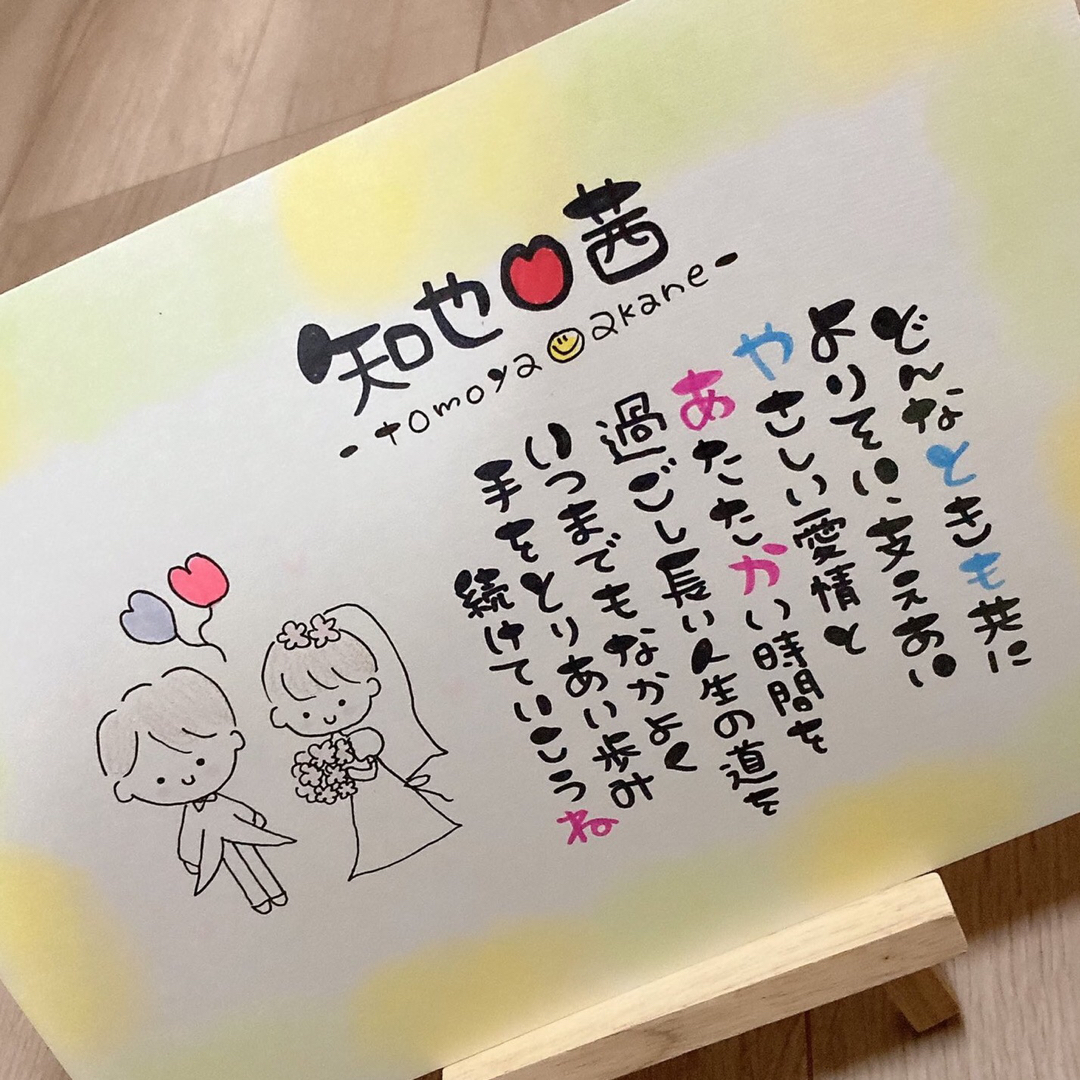 知也 茜
-tomoya akane-
どんなときも共に
よりそい、支えあい
やさしい愛情と
あたたかい時間を
過ごし長い人生の道を
いつまでもなかよく
手をとりあい歩み
続けていこうね